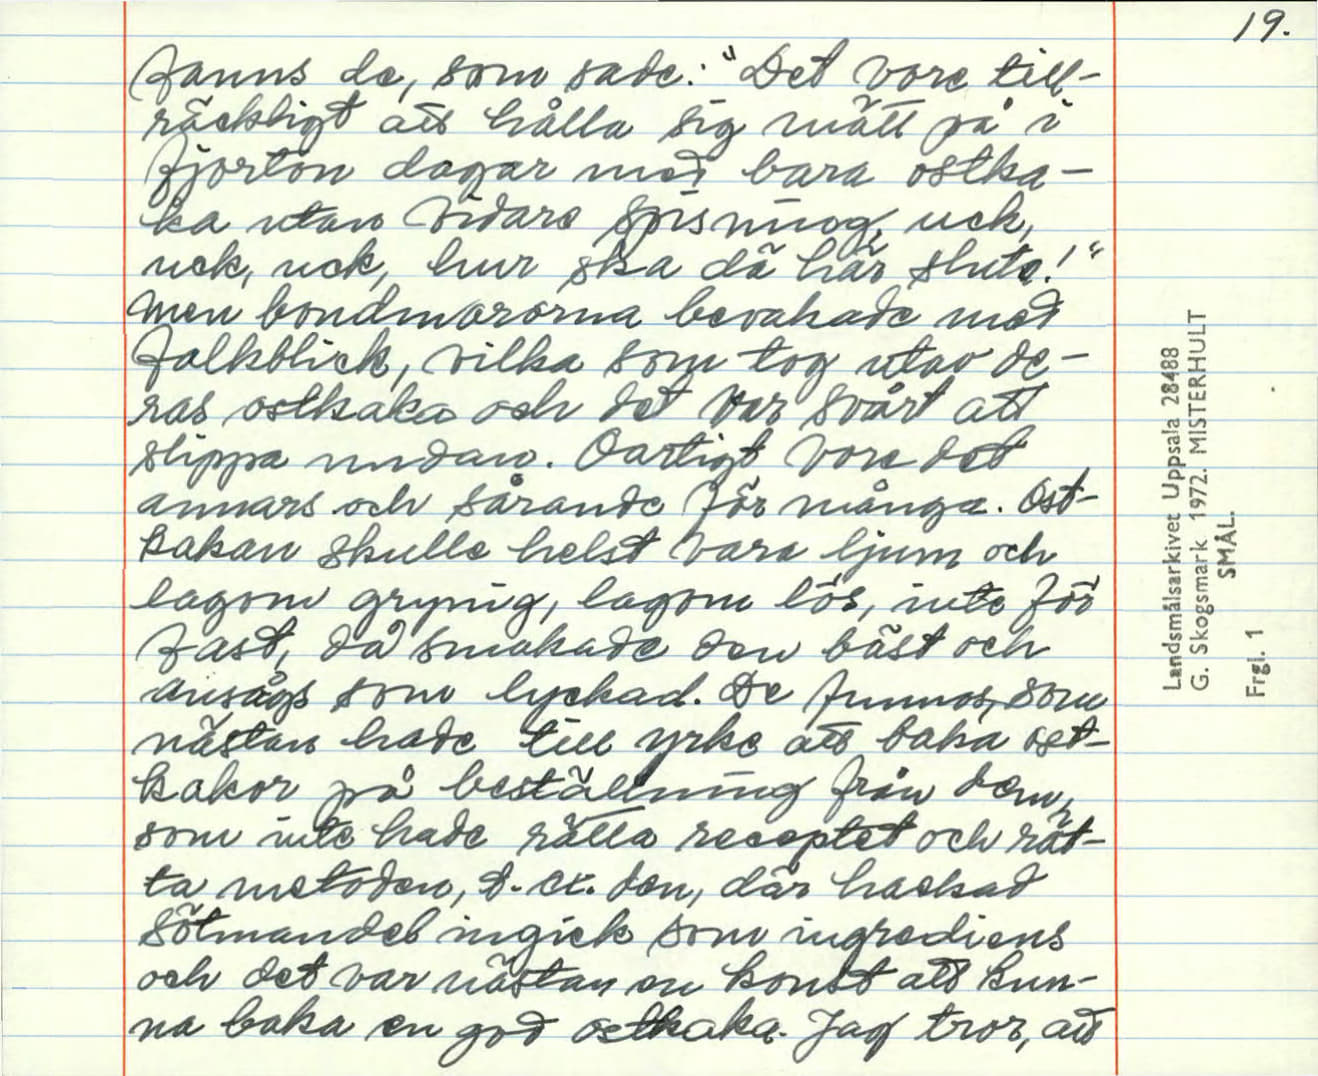 19.
fanns de, som sade: "Det vore till-
räckligt att hålla sig mätt på i
fjorton dagar med bara ostka-
ka utan vidare spisning, uck,
uck, uck, hur ska dä här sluta!"
Men bondmororna bevakade med
falkblick, vilka som tog utav de-
ras ostkaka och det var svårt att
slippa undan. Oartigt vore det
annars och sårande för många. Ost-
kakan skulle helst vara ljum och
lagom grynig, lagom lös, inte för
fast, då smakade den bäst och
ansågs som lyckad. De funnos, som
nästan hade till yrke att baka ost-
kakor på beställning från dem,
som inte hade rätta receptet och rät-
ta metoden, d. ä. den, där hackad
sötmandel ingick som ingrediens
och det var nästan en konst att kun-
na baka en god ostkaka. Jag tror, att
Landsmålsarkivet Uppsala 28488
G. Skogsmark 1972. MISTERHULT
SMÅL.
Frgl. 1